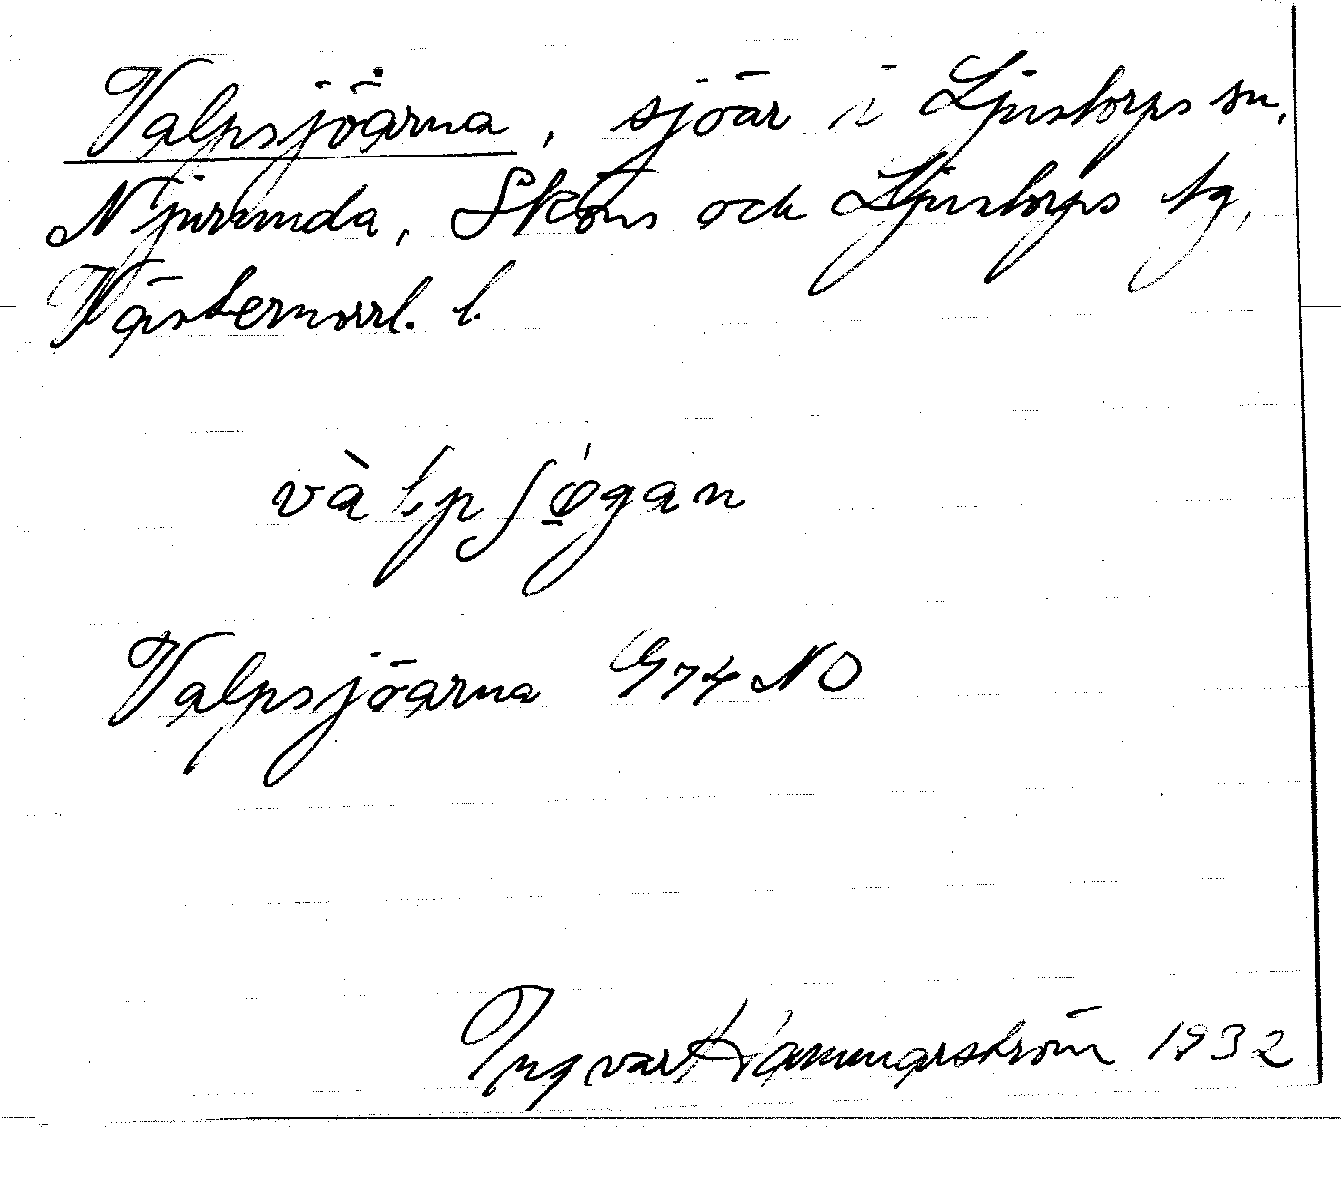 Valpsjöarna, sjöar i Ljustorps sn,
Njurunda, Sköns och Ljustorps tg,
Västernorrl. l.
và lp ʃø̠´gan
Valpsjöarna G74NO
Ingvar Hammarström 1932